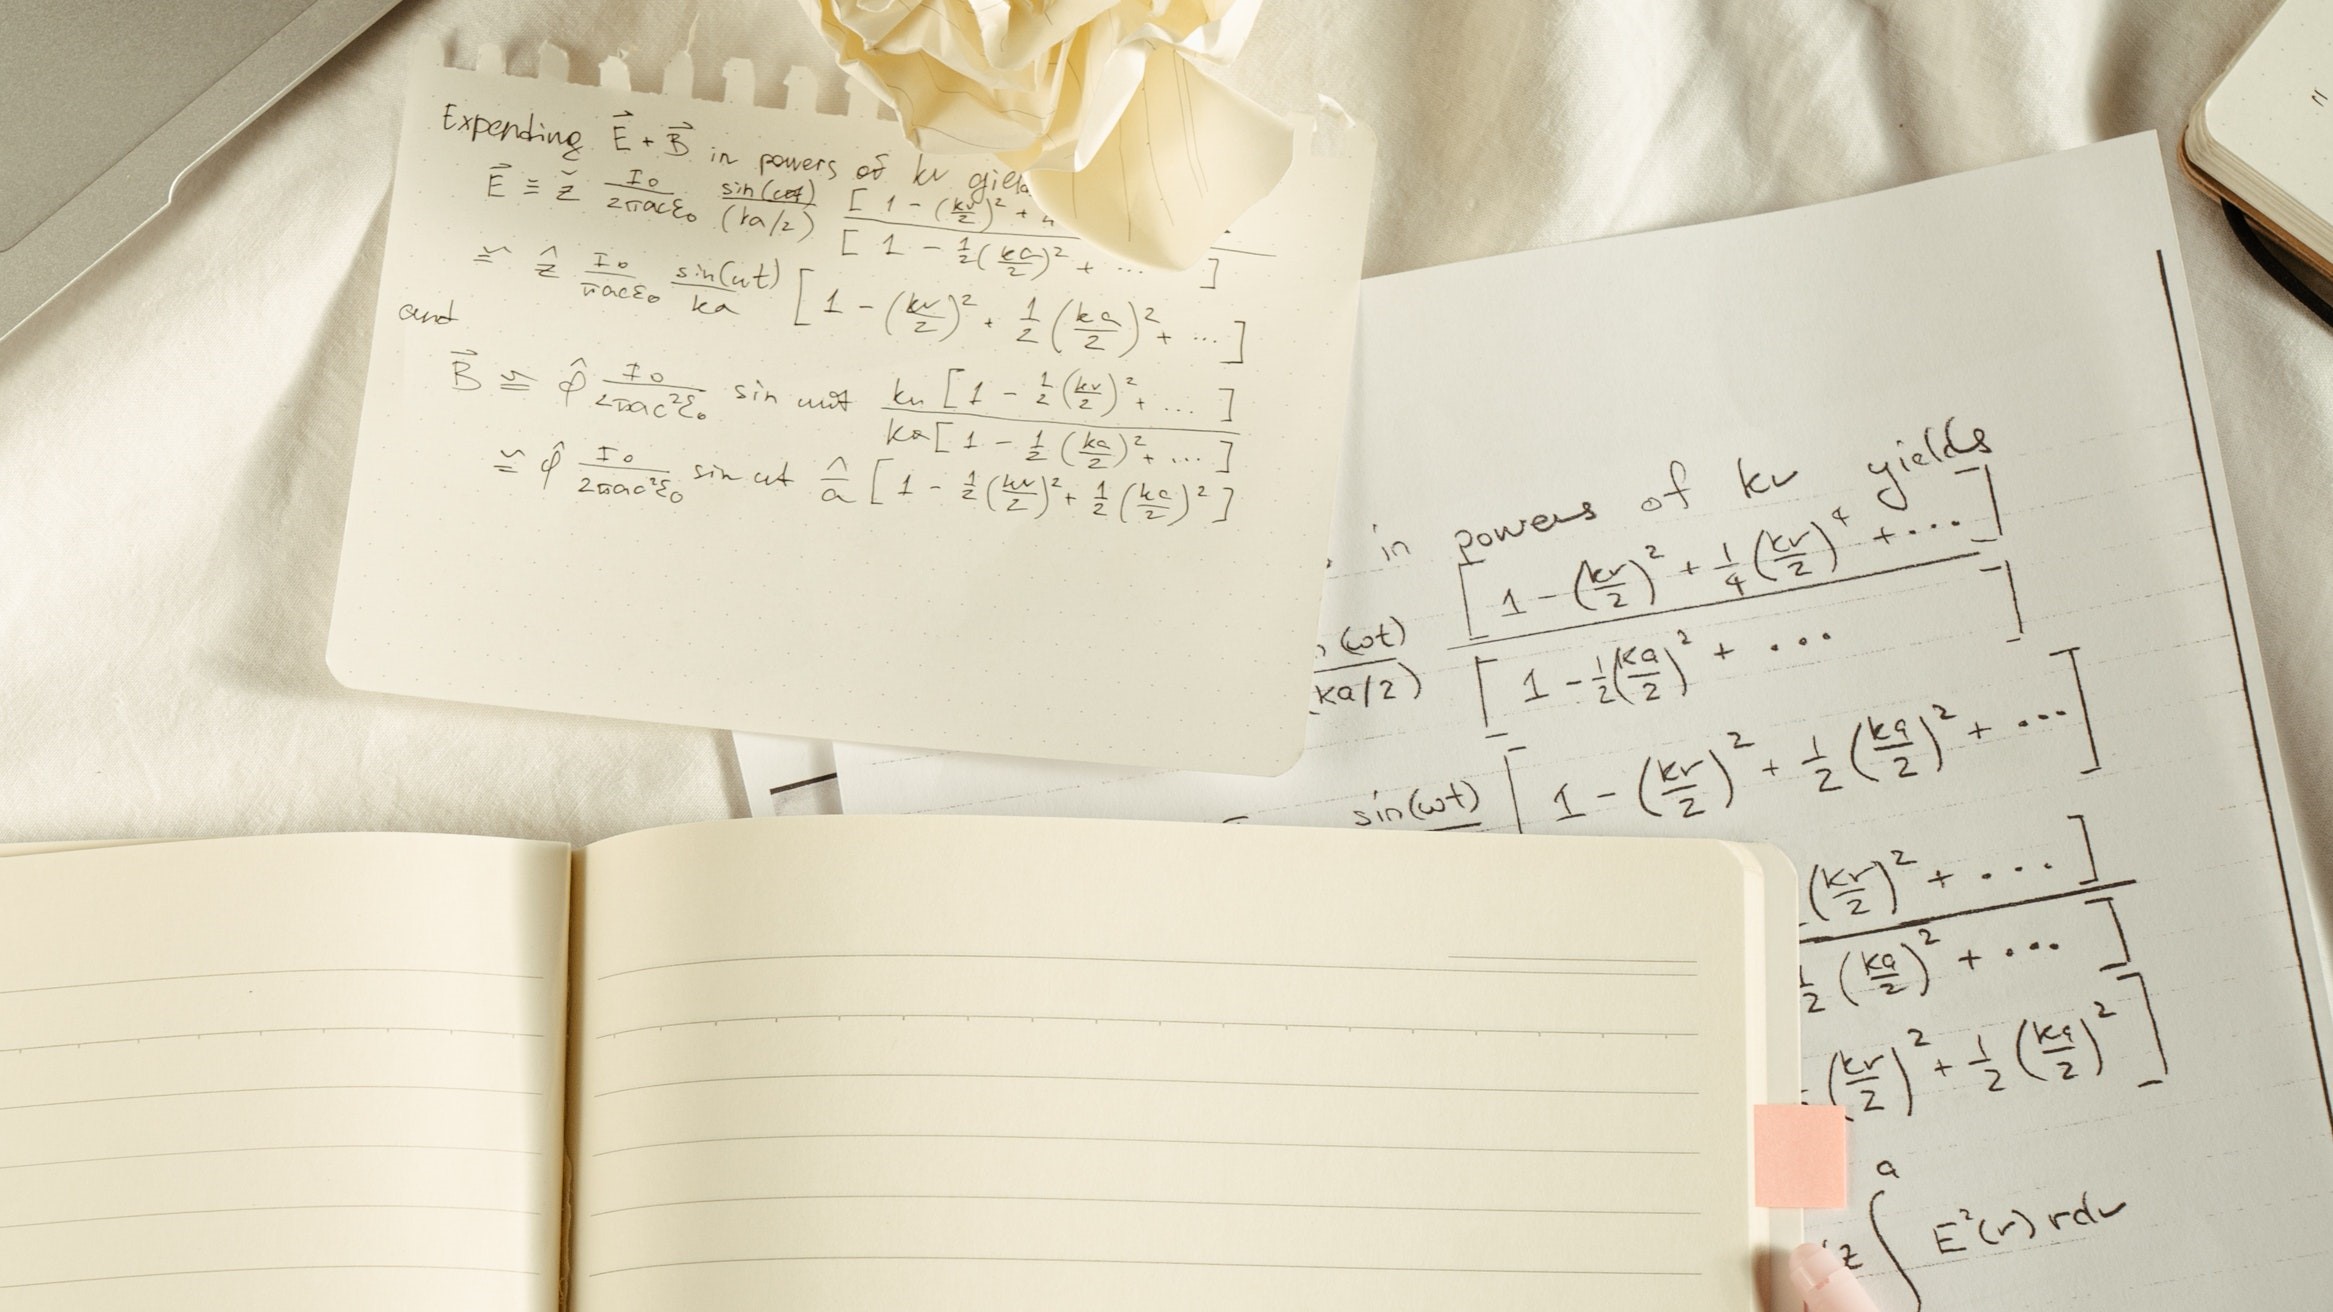 Expending E⃗ + B⃗ in powers of kr
E⃗ ≅ ž I₀/2πacε₀ sin(ωt)/(ka/2) [1 - (kr/2)² +
[1 - ½(ka/2)² + ... ]
≅ ẑ I₀/πacε₀ sin(ωt)/ka [1 - (kr/2)² + ½(ka/2)² + ... ]
and
B⃗ ≅ φ̂ I₀/2πac²ε₀ sin ωt kr[1 - ½(kr/2)² + ... ]/ka[1 - ½(ka/2)² + ... ]
≅ φ̂ I₀/2πac²ε₀ sin ωt r/a [1 - ½(kr/2)² + ½(ka/2)²]
in powers of kr yields
(ωt)/(ka/2) [1 - (kr/2)² + ¼(kr/2)⁴ + ...]/[1 - ½(ka/2)² + ... ]
sin(ωt) [1 - (kr/2)² + ½(ka/2)² + ...]
(kr/2)² + ... ]
½(ka/2)² + ... ]
(kr/2)² + ½(ka/2)² ]
z ∫ᵃ E²(r) rdr